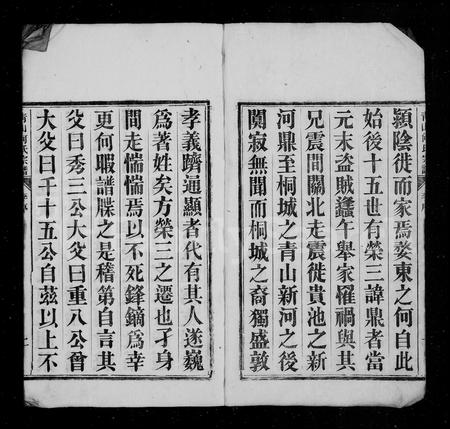 潁陰徙而家焉婺東之何自此
始後十五世有榮三諱鼎者當
元末盜賊蠭午舉家罹禍與其
兄震間關北走震徙貴池之新
河鼎至桐城之青山新河之後
闃寂無聞而桐城之裔獨盛敦
孝義躋通顯者代有其人遂巍
爲著姓矣方榮三之遷也孑身
間走惴惴焉以不死鋒鏑爲幸
更何暇譜牒之是稽第自言其
父曰秀三公大父曰重八公曾
大父曰千十五公自茲以上不
青山何氏宗譜